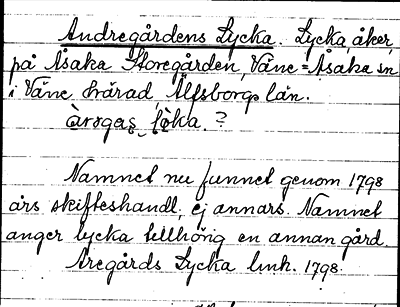 Andregårdens Lycka. Lycka, åker,
på Åsaka Storegården, Väne=Åsaka sn
i Väne härad, Älfsborgs län.
?
Namnet nu funnet genom 1798
års skifteshandl., ej annars. Namnet
anger lycka tillhörig en annan gård.
Aregårds Lycka link. 1798.